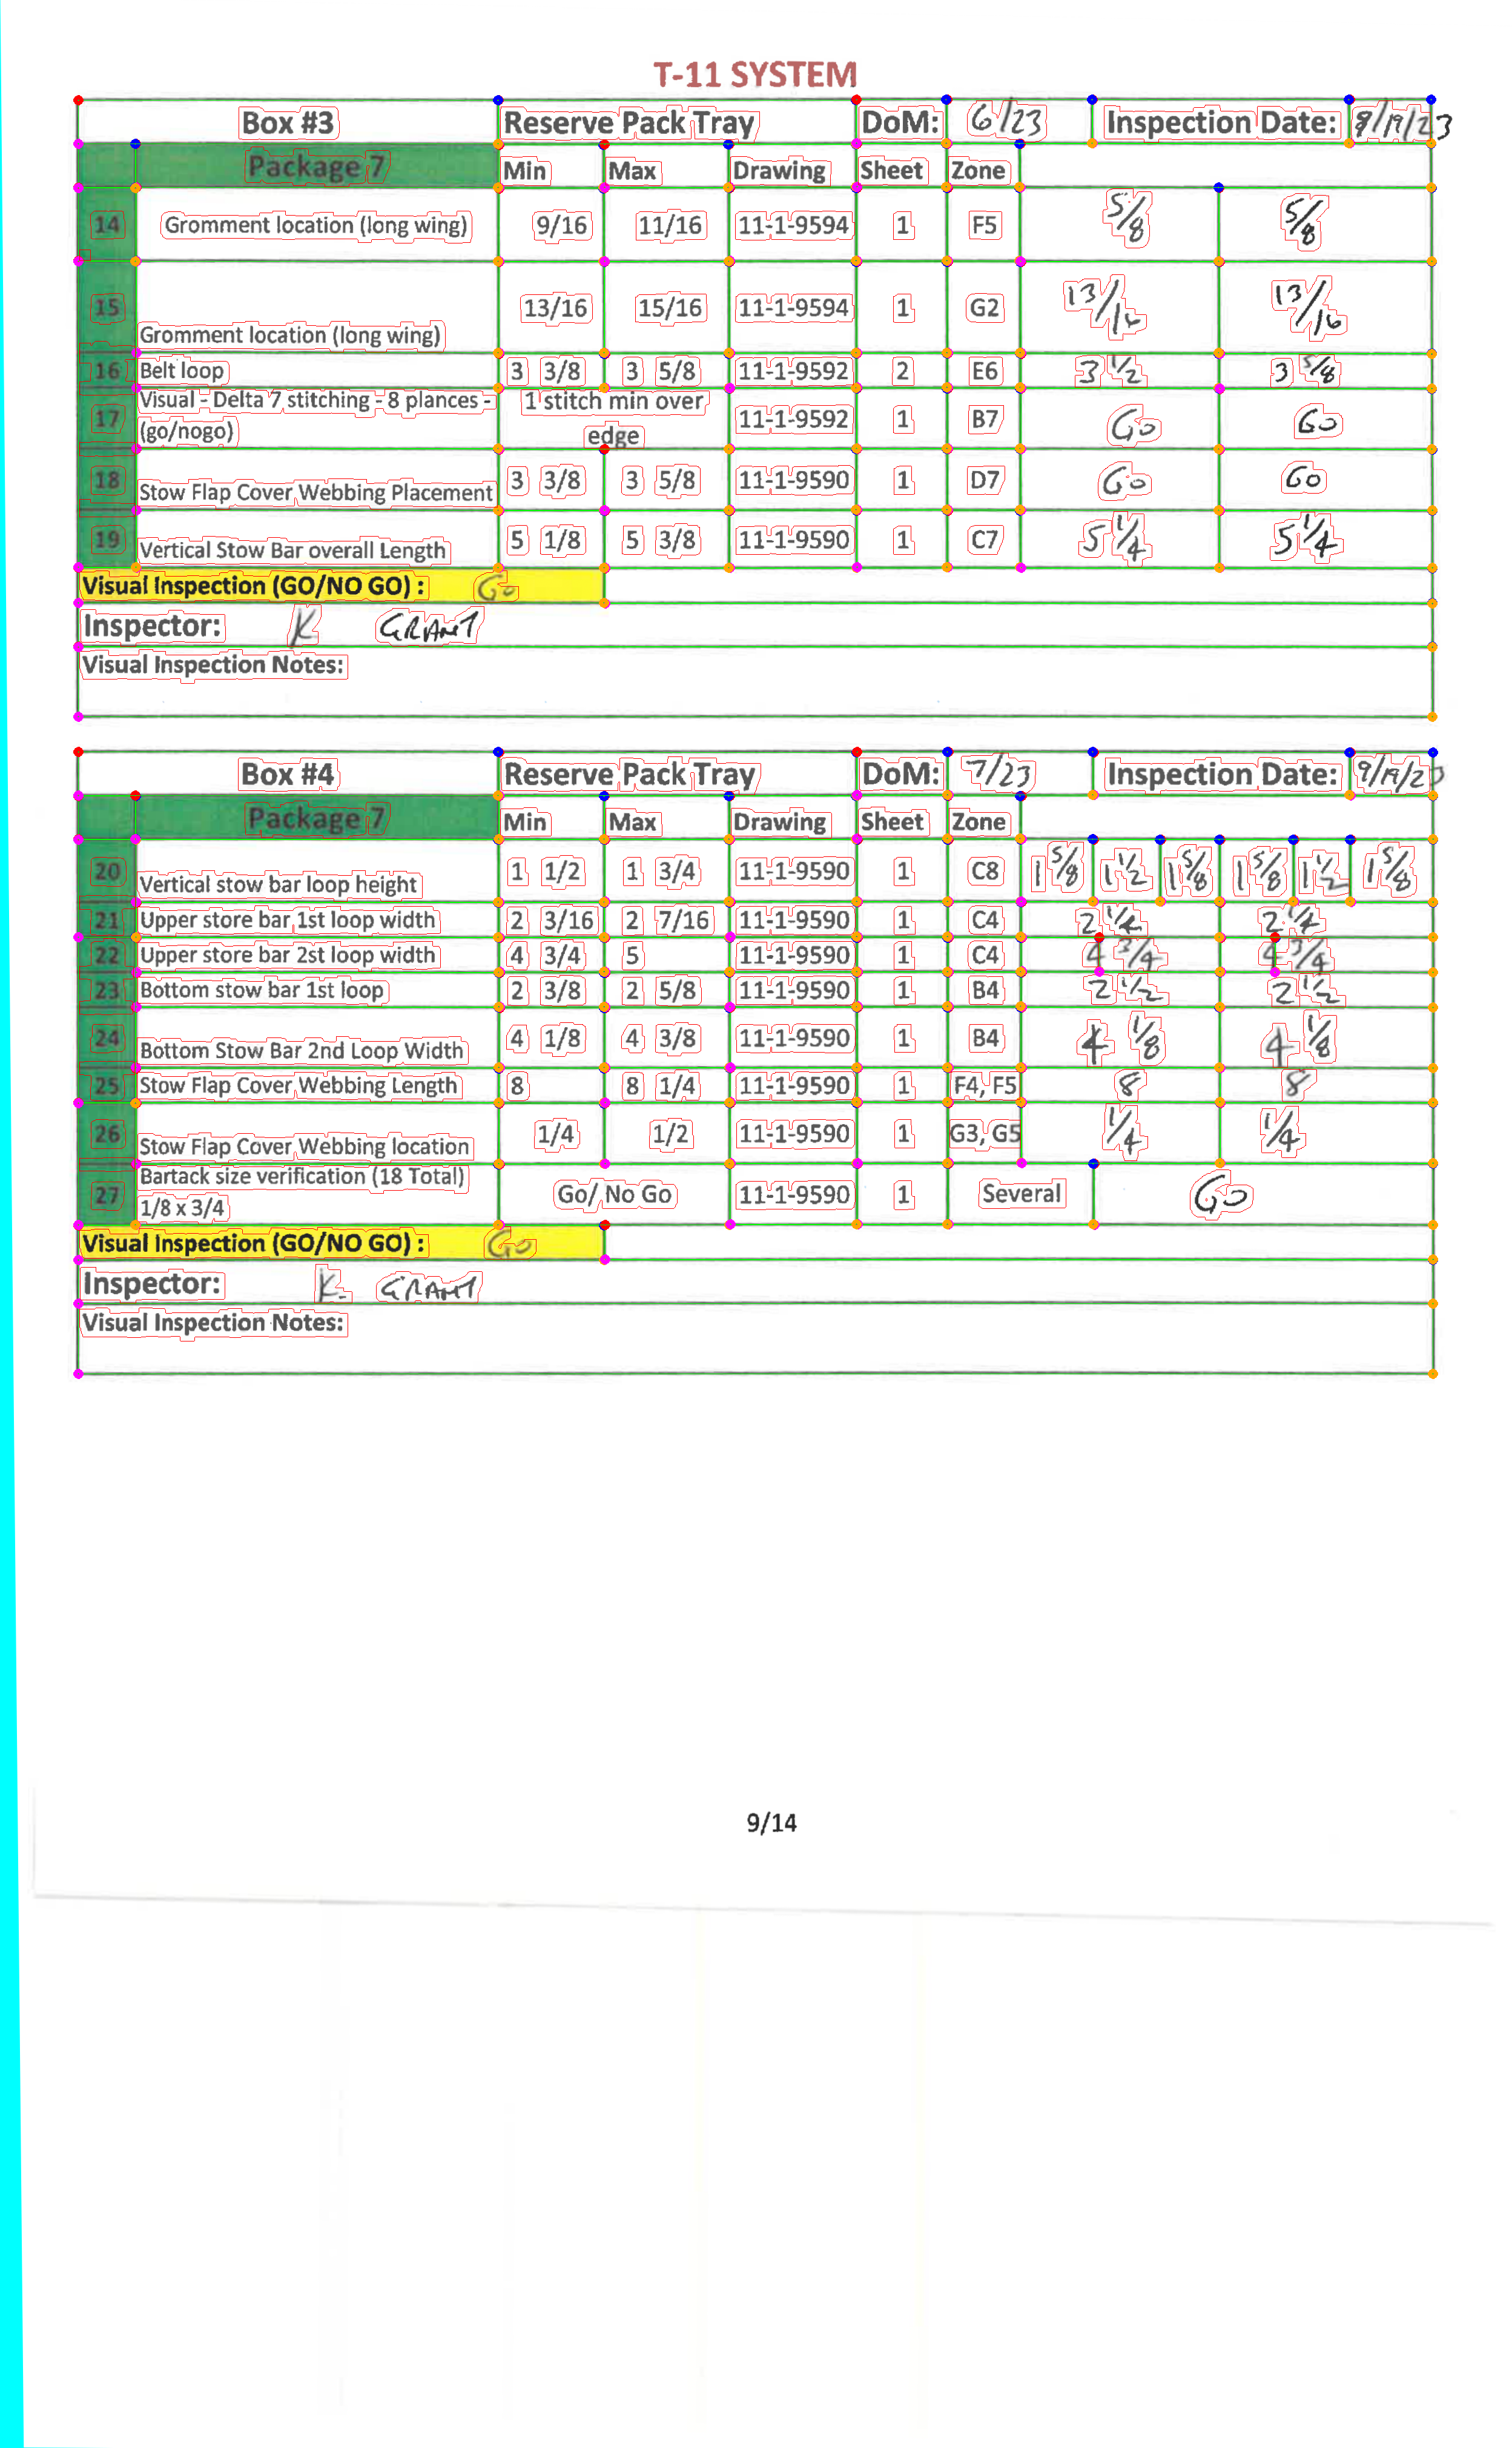 T-11 SYSTEM
Box #3 Reserve Pack Tray DoM: 6/23 Inspection Date: 9/19/23
Package 7 Min Max Drawing Sheet Zone
14 Gromment location (long wing) 9/16 11/16 11-1-9594 1 F5 5/8 5/8
15 Gromment location (long wing) 13/16 15/16 11-1-9594 1 G2 13/16 13/16
16 Belt loop 3 3/8 3 5/8 11-1-9592 2 E6 3 1/2 3 5/8
17 Visual - Delta 7 stitching - 8 plances - 1 stitch min over 11-1-9592 1 B7 Go Go
(go/nogo) edge
18 Stow Flap Cover Webbing Placement 3 3/8 3 5/8 11-1-9590 1 D7 Go Go
19 Vertical Stow Bar overall Length 5 1/8 5 3/8 11-1-9590 1 C7 5 1/4 5 1/4
Visual Inspection (GO/NO GO) : Go
Inspector: K GRANT
Visual Inspection Notes:
Box #4 Reserve Pack Tray DoM: 7/23 Inspection Date: 9/19/23
Package 7 Min Max Drawing Sheet Zone
20 Vertical stow bar loop height 1 1/2 1 3/4 11-1-9590 1 C8 1 5/8 1 1/2 1 5/8 1 5/8 1 1/2 1 5/8
21 Upper store bar 1st loop width 2 3/16 2 7/16 11-1-9590 1 C4 2 1/4 2 1/4
22 Upper store bar 2st loop width 4 3/4 5 11-1-9590 1 C4 4 3/4 4 3/4
23 Bottom stow bar 1st loop 2 3/8 2 5/8 11-1-9590 1 B4 2 1/2 2 1/2
24 Bottom Stow Bar 2nd Loop Width 4 1/8 4 3/8 11-1-9590 1 B4 4 1/8 4 1/8
25 Stow Flap Cover Webbing Length 8 8 1/4 11-1-9590 1 F4, F5 8 8
26 Stow Flap Cover Webbing location 1/4 1/2 11-1-9590 1 G3, G5 1/4 1/4
27 Bartack size verification (18 Total) Go/ No Go 11-1-9590 1 Several Go
1/8 x 3/4
Visual Inspection (GO/NO GO) : Go
Inspector: K. GRANT
Visual Inspection Notes:
9/14